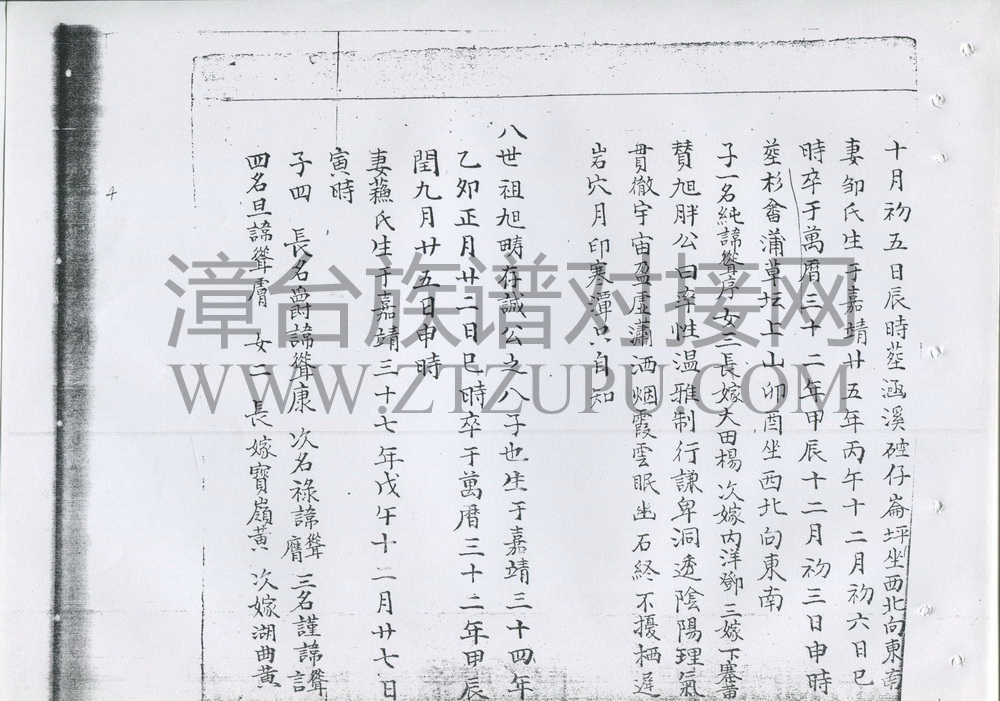 十月初五日辰時葬涵溪硿仔崙坪坐西北向東南
妻邹氏生于嘉靖廿五年丙午十二月初六日巳
時卒于萬曆三十二年甲辰十二月初三日申時
葬杉畲蒲草坛上山卯酉坐西北向東南
子一名純諱聳序女三長嫁大田楊 次嫁内洋鄧 三嫁下寨
賛旭胖公曰淬性温雅制行謙卑洞透陰陽理氣
貫徹宇宙盈虚瀟洒烟霞雲眠出石終不擾栖遲
岩穴月印寒潭只自知
八世祖旭疇存誠公之八子也生于嘉靖三十四年
乙卯正月廿二日巳時卒于萬曆三十二年甲辰
閏九月廿五日申時
妻蘓氏生于嘉靖三十七年戊午十二月廿七日
寅時
子四 長名爵諱聳康 次名祿諱聳膺 三名謹諱聳訁
四名旦諱聳膚 女二 長嫁寶嶺黄 次嫁湖曲黄
漳台族谱对接网
WWW.ZTZUPU.COM